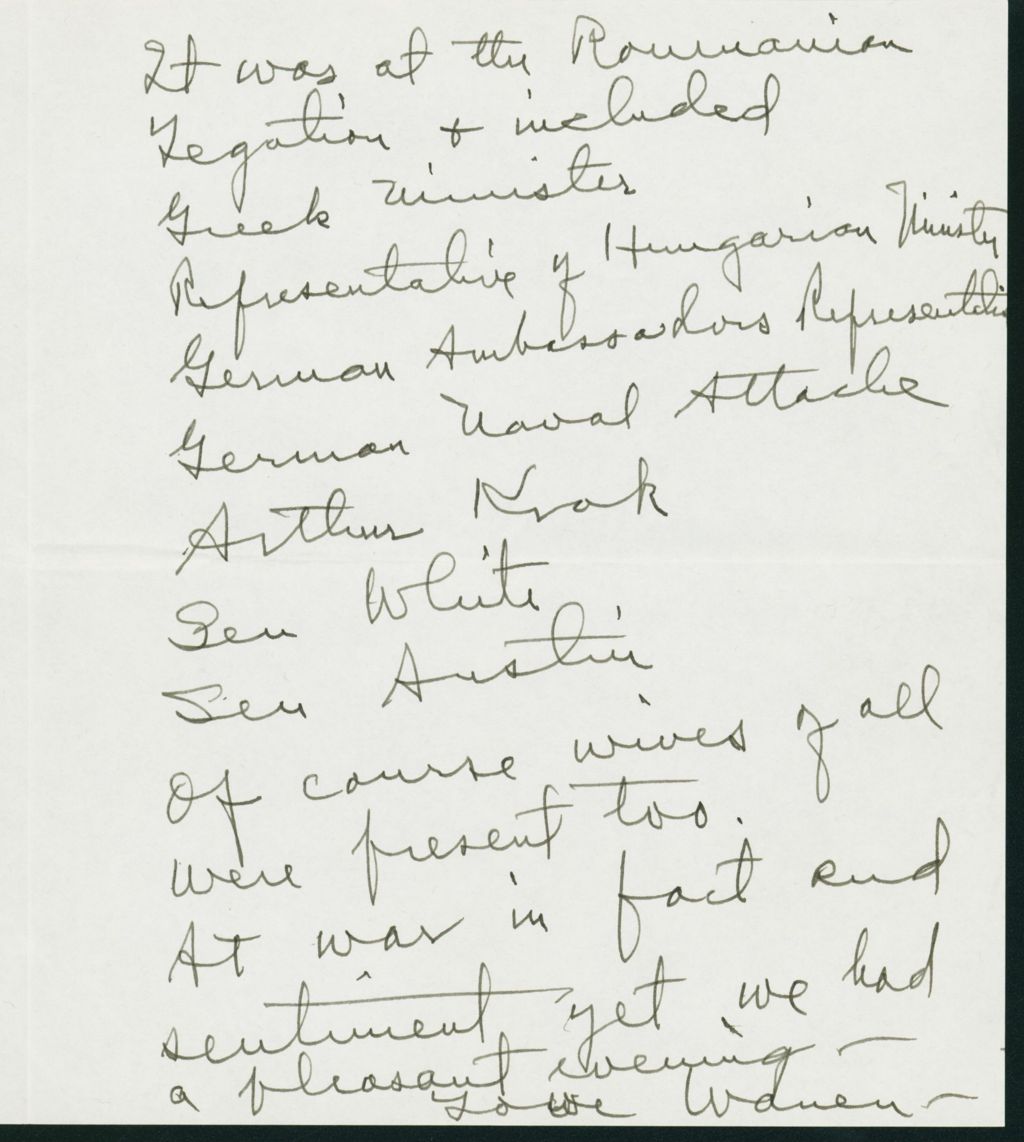 It was at the Roumanian
Legation & included
Greek Minister
Representative of Hungarian Ministry
German Ambassadors Representative
German Naval Attache
Arthur Krok
Sen White
Sen Austin
Of course wives of all
were present too.
At war in fact and
sentiment yet we had
a pleasant evening —